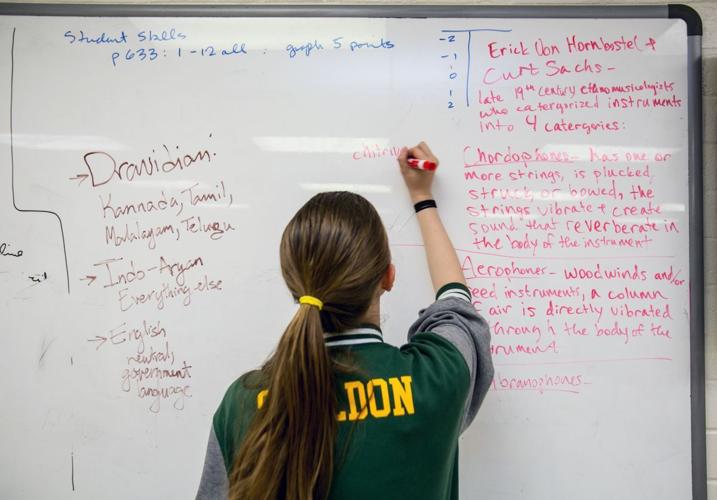 Student Skills
p 633: 1-12 all : graph 5 points
-2
-1
0
1
2
Erick Von Hornbostel +
Curt Sachs -
late 19th century ethnomusicologists
who catergorized instruments
into 4 catergories:
→ Dravidian:
Kannada, Tamil,
Malalayam, Telugu
→ Indo-Aryan
Everything else
→ English
neutral,
government
language
Chordophones - has one or
more strings, is plucked,
struck or bowed, the
strings vibrate + create
sound that reverberate in
the body of the instrument
Aerophones - woodwinds and/or
reed instruments, a column
of air is directly vibrated
through the body of the
DON